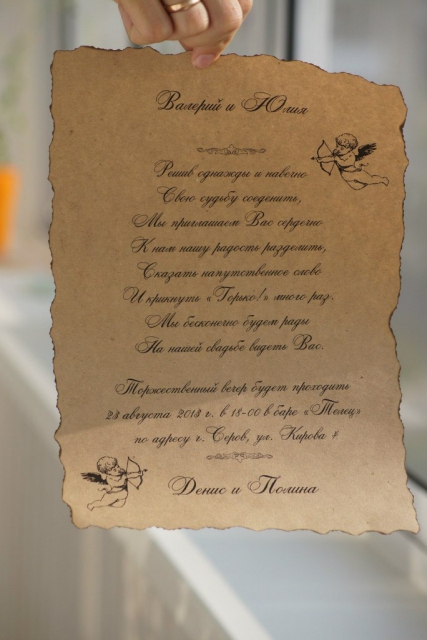 Валерий и Юлия
Решив однажды и навечно
Свою судьбу соеденить,
Мы приглашаем Вас сердечно
К нам нашу радость разделить,
Сказать напутственное слово
И крикнуть «Горько!» много раз.
Мы бесконечно будем рады
На нашей свадьбе видеть Вас.
Торжественный вечер будет проходить
августа г. в 18-00 в баре «Телец»
по адресу г. Серов, ул. Кирова
Денис и Полина